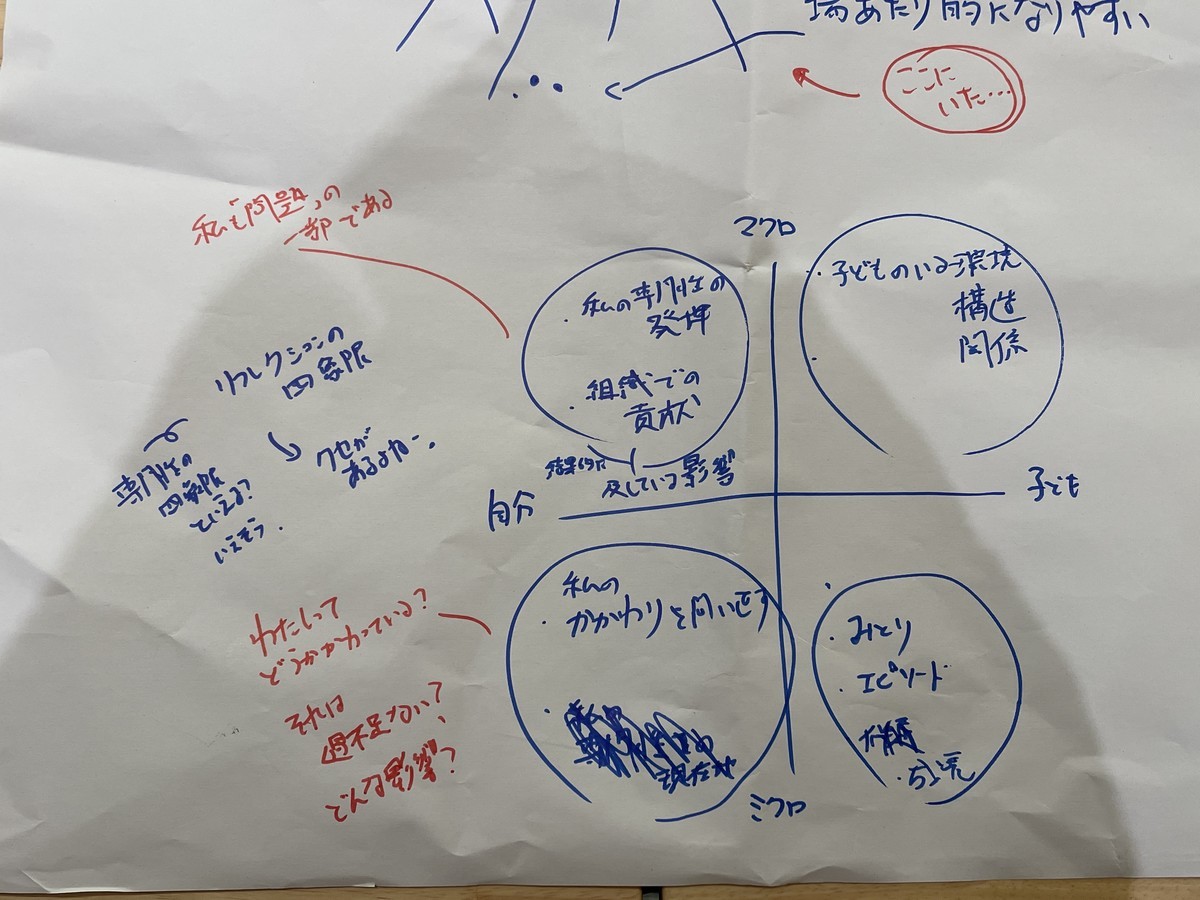 場あたり的になりやすい
ここに
いた…
私も「問題」の
一部である
マクロ
・私の専門性の
発揮
・組織での
貢献
・子どものいる環境
構造
関係
リフレクションの
四象限
専門性の
四象限
といえる?
いえそう.
クセが
あるよねー.
及している影響
自分
子ども
私の
・かかわりを問い直す
・みとり
・エピソード
ミクロ
わたしって
どうかかわっている?
それは
過不足ない?
どんな影響?